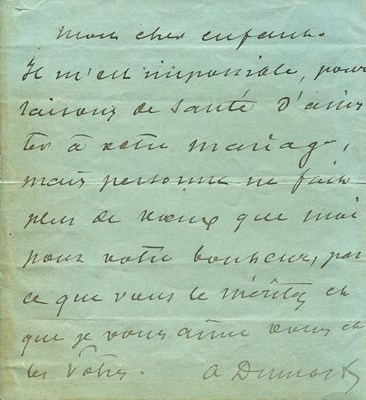 Mon cher enfant.
Il m'est impossible, pour
raisons de santé d'assis
ter à votre mariage,
mais personne ne fait
plus de vœux que moi
pour votre bonheur, par
ce que vous le méritez et
que je vous aime vous et
les vôtres. A Dumas